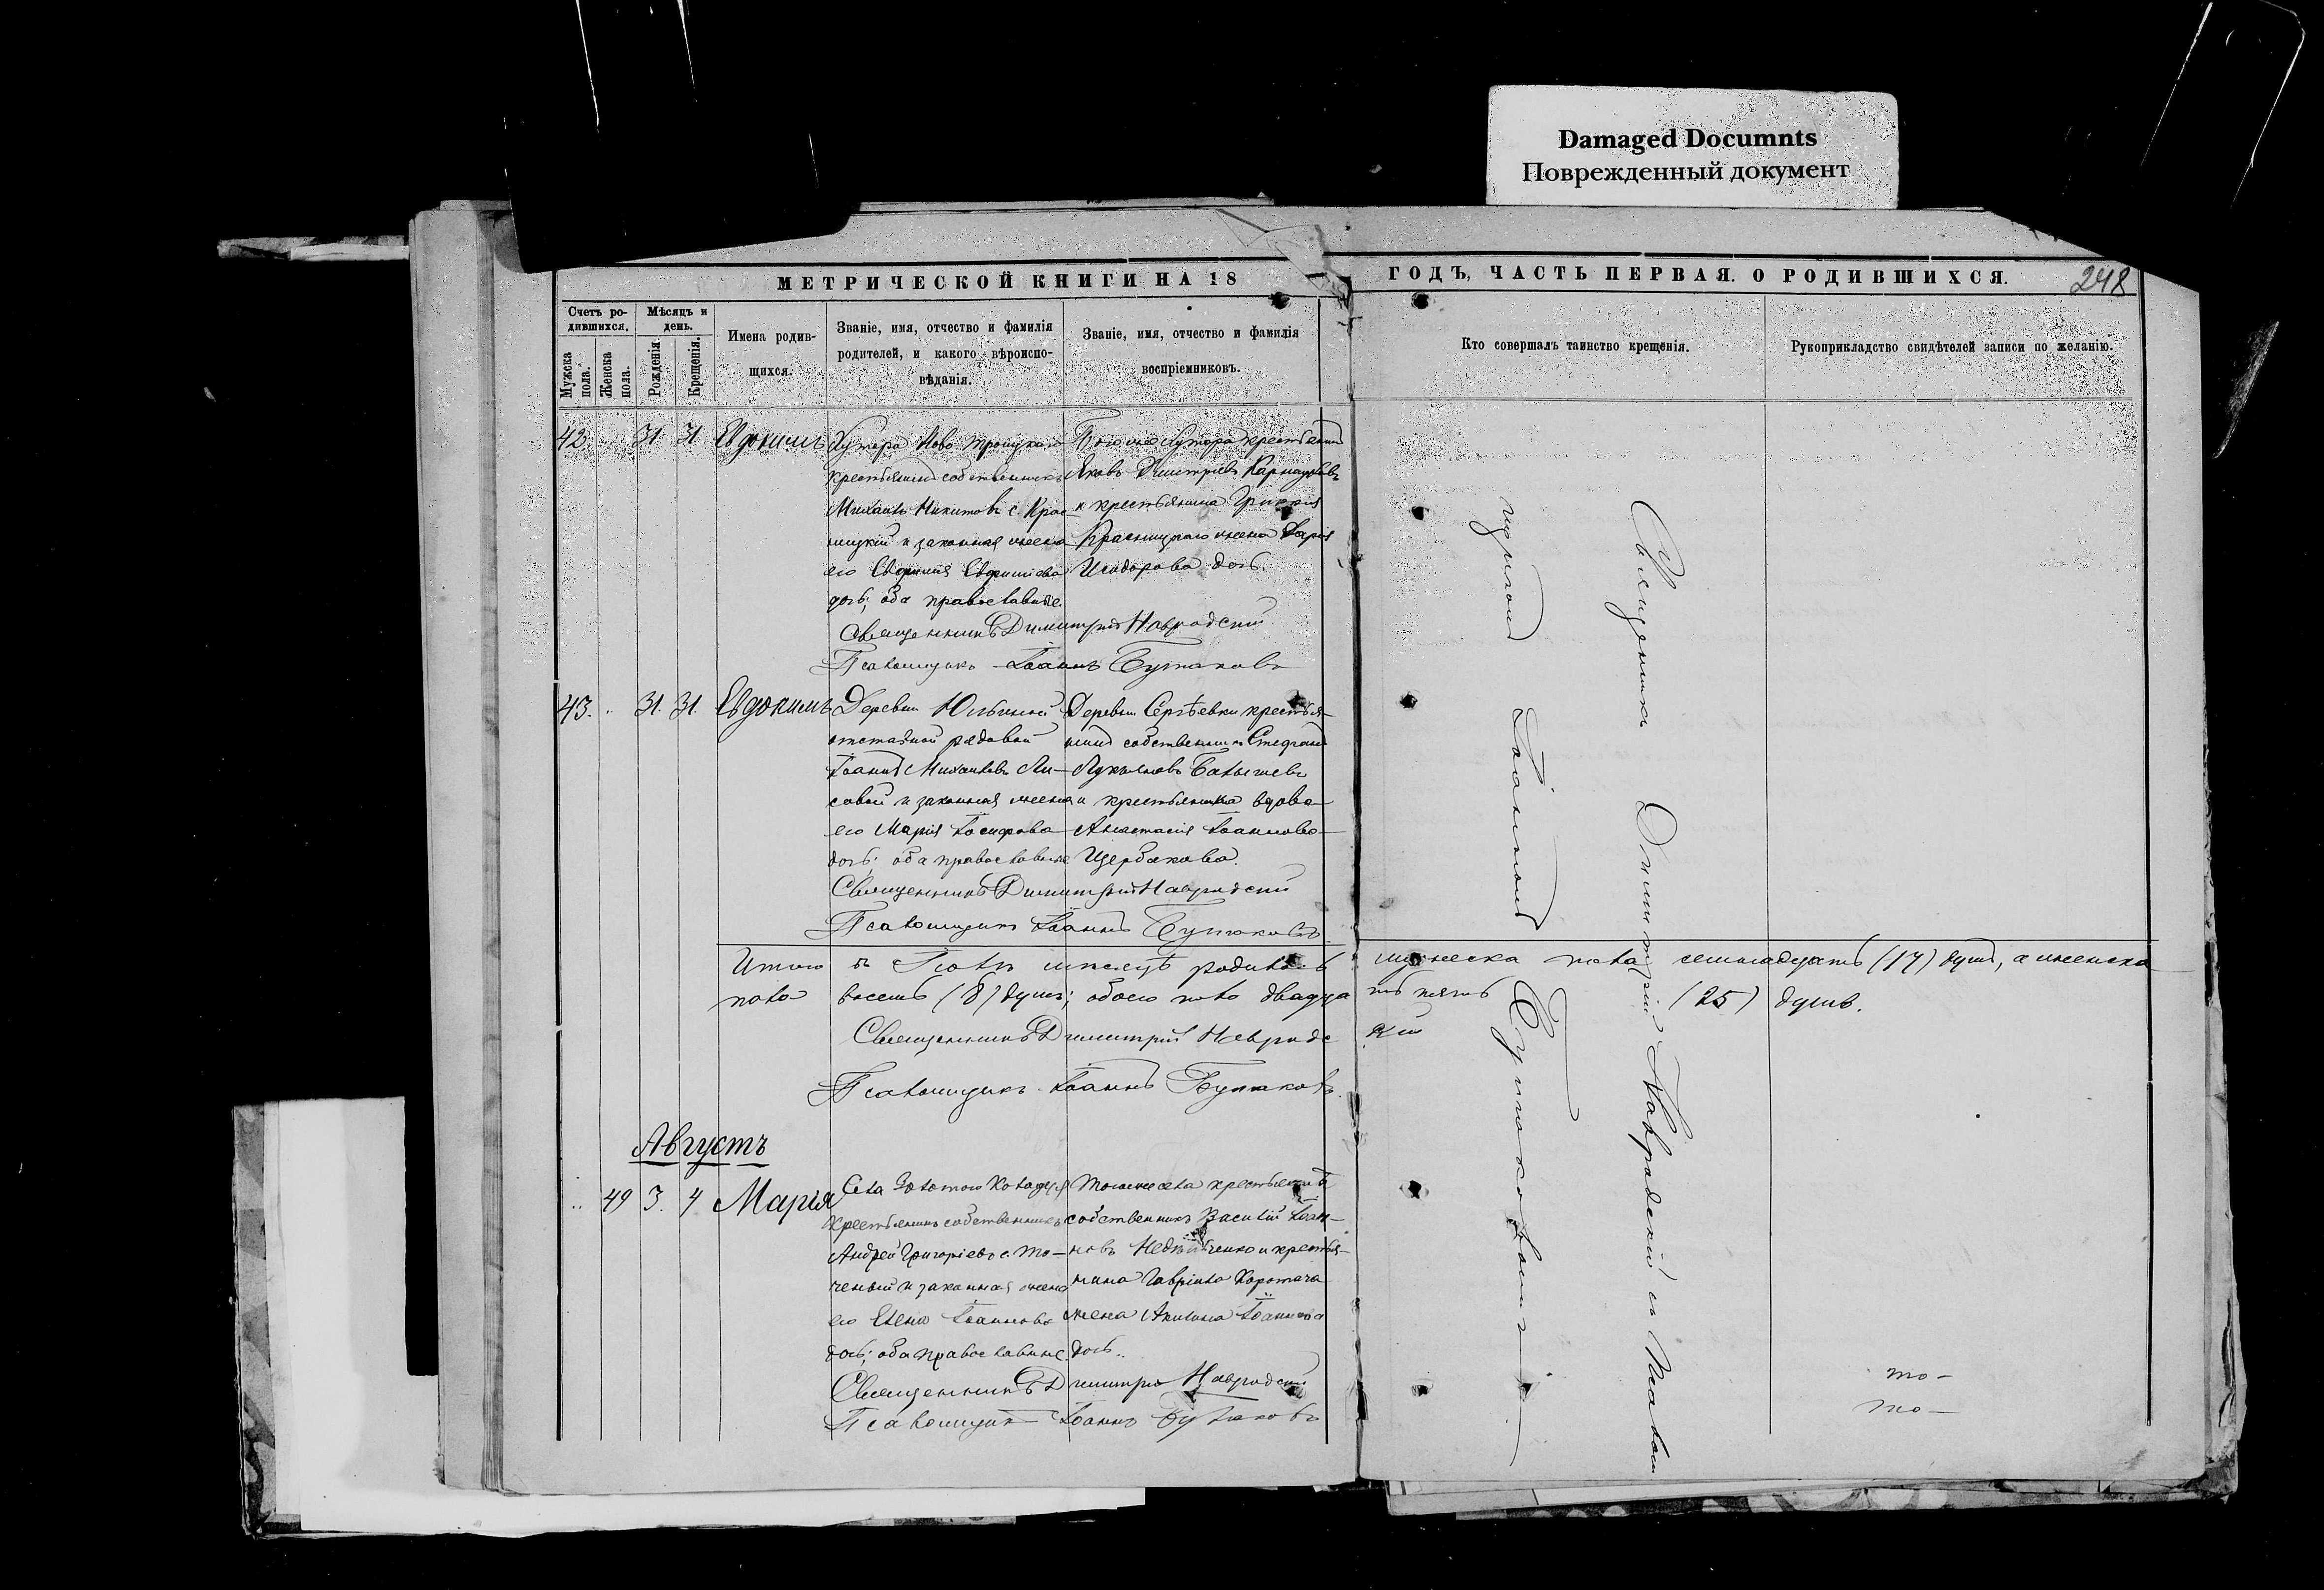 Damaged Documnts
Поврежденный документ
МЕТРИЧЕСКОЙ КНИГИ НА 18
ГОДЪ, ЧАСТЬ ПЕРВАЯ. О РОДИВШИХСЯ.
248
Счетъ ро-
дившихся.
Мужска
пола.
Женска
пола.
Мѣсяцъ и
день.
Рожденія.
Крещенія.
Имена родив-
щихся.
Званіе, имя, отчество и фамилія
родителей, и какого вѣроиспо-
вѣданія.
Званіе, имя, отчество и фамилія
воспріемниковъ.
Кто совершалъ таинство крещенія.
Рукоприкладство свидѣтелей записи по желанію.
42 31 31 Евдокимъ
Хутора Ново Троицкаго
крестьянинъ собственникъ
Михаилъ Никитовъ с. Крас-
ницкій и законная жена
его Евфимія Евфиміева
дочь; оба православные.
Того же хутора крестьянинъ
Яковъ Дмитріевъ
и крестьянина
Красницкаго жена Дарія
Исидорова дочь.
Священникъ Димитрій Навродскій
Псаломщикъ Іоаннъ Бутаковъ
43. 31. 31. Евдокимъ
Деревни
отставной рядовой
Іоаннъ Михаиловъ Ли-
совой и законная жена
его Марія Іосифова
дочь; оба православные
Деревни Сергѣевки крестья-
нинъ собственникъ Стефанъ
Лукьяновъ
и крестьянка вдова
Анастасія Іоаннова
Щербакова.
Священникъ Димитрій Навродскій
Псаломщикъ Іоаннъ Бутаковъ
Итого въ Іюлѣ мѣсяцѣ родилось мужеска пола семнадцать (17) душъ, а женска
пола восемь (8) душъ; обоего пола двадцать пять (25) душъ.
Священникъ Димитрій Навродскій
Псаломщикъ Іоаннъ Бутаковъ.
Августъ
49 3. 4 Марія
Села Золотого Колодезя
крестьянинъ собственникъ
Андрей Григоріевъ с. То-
ченый и законная жена
его Елена Іоаннова
дочь; оба православные.
Тогоже села крестьянинъ
собственникъ Василій Іоан-
новъ и крестья-
нина Гавріила Коротача
жена Акилина Іоаннова
дочь.
Священникъ Димитрій Навродскій
Псаломщикъ Іоаннъ Бутаковъ
Священникъ Димитрій Навродскій съ Псалом
щикомъ Іоанномъ Бутаковымъ
то-
то-